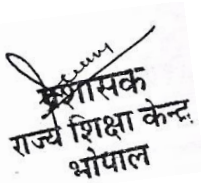 प्रशासक
राज्य शिक्षा केन्द्र
भोपाल